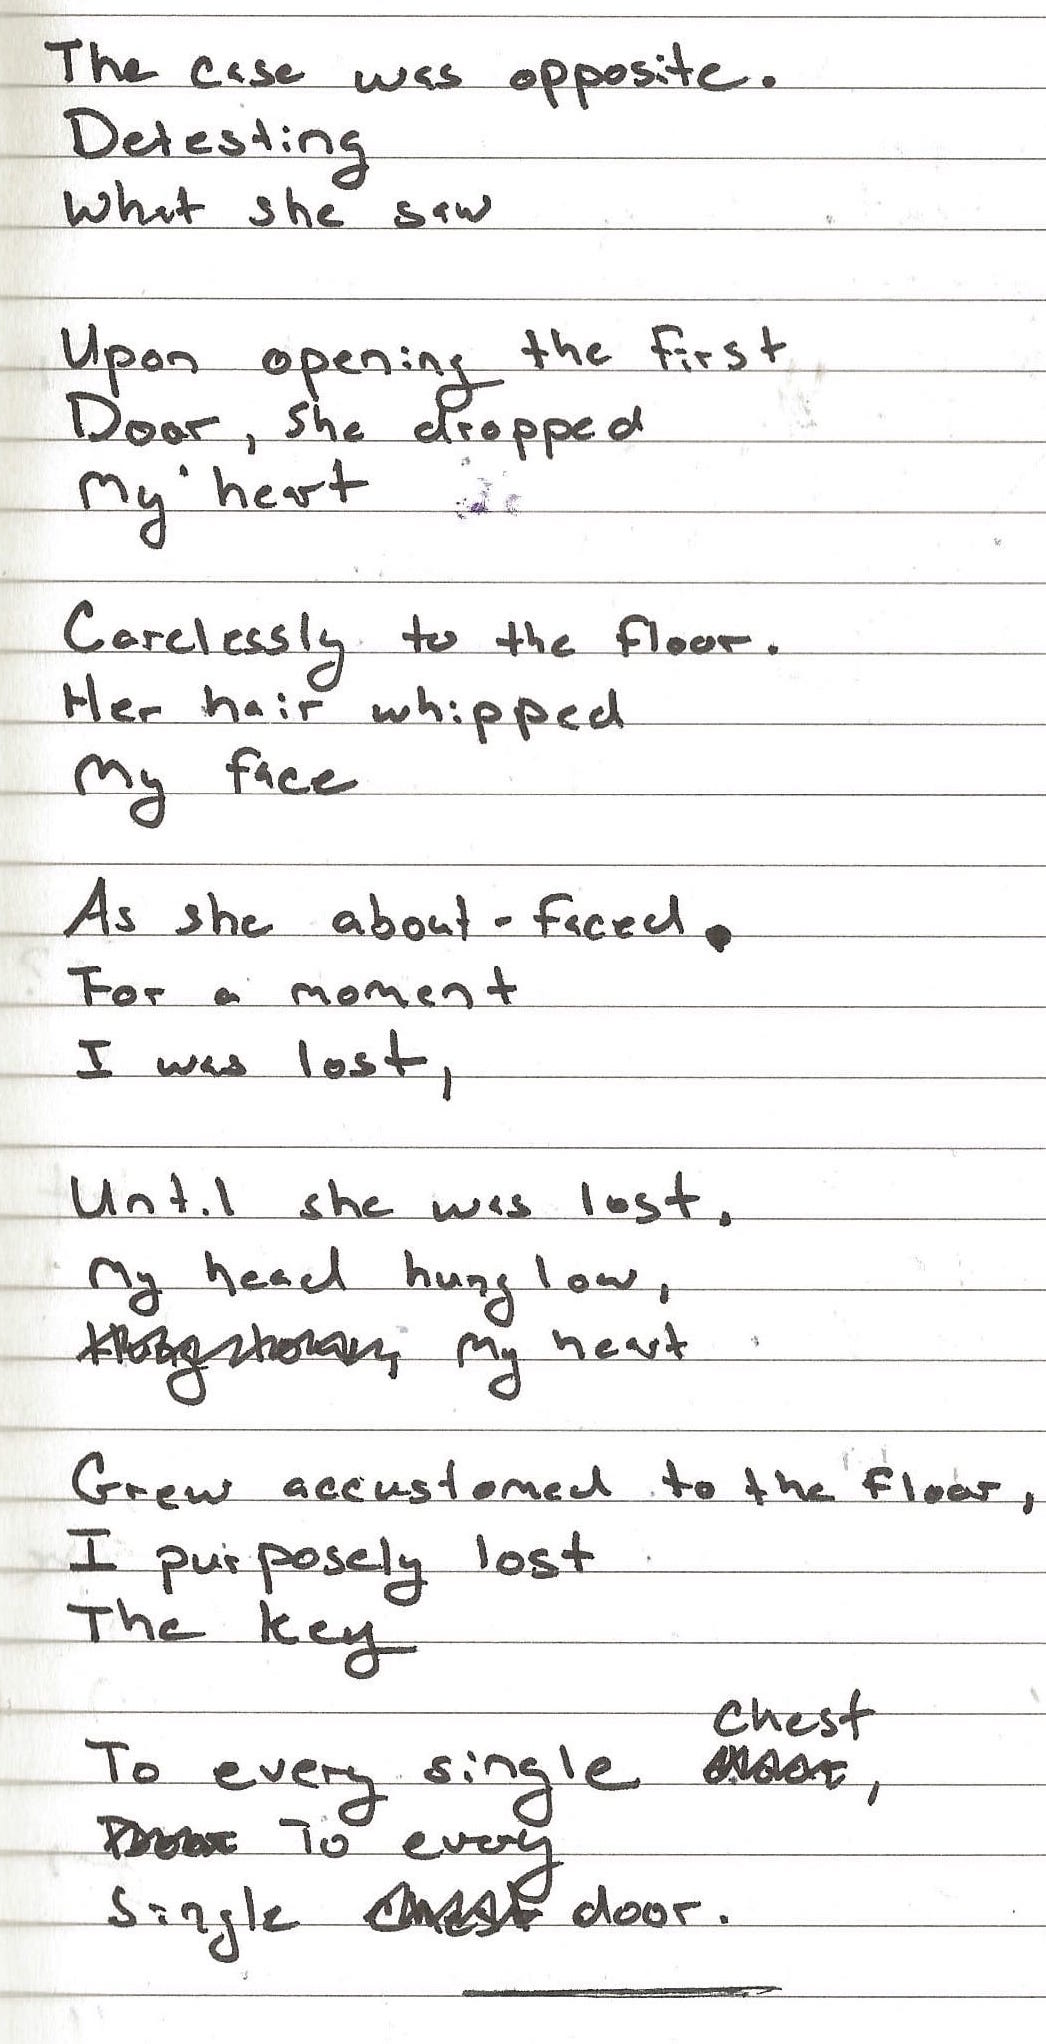 The case was opposite.
Detesting
What she saw
Upon opening the first
Door, she dropped
My heart
Carelessly to the floor.
Her hair whipped
My face
As she about-faced.
For a moment
I was lost,
Until she was lost.
My head hung low,
My heart
Grew accustomed to the floor,
I purposely lost
The key
chest
To every single door,
To every
Single chest door.